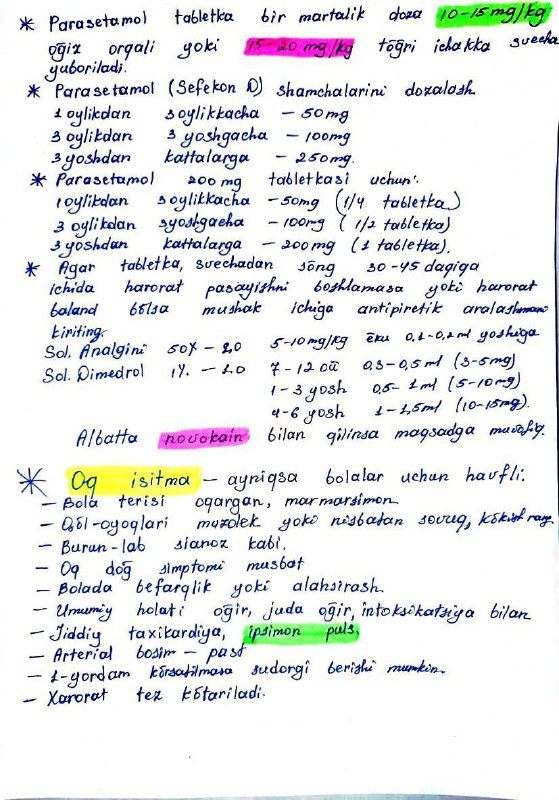 * Parasetamol tabletka bir martalik doza 10-15 mg/kg
og̃iz orqali yoki 15-20 mg/kg tog̃ri ichakka svecha
yuboriladi.
* Parasetamol (Sefekon D) shamchalarini dozalash
1 oylikdan 3 oylikkacha - 50 mg
3 oylikdan 3 yoshgacha - 100mg
3 yoshdan kattalarga - 250mg.
* Parasetamol 200 mg tabletkasi uchun:
1 oylikdan 3 oylikkacha -50mg (1/4 tabletka)
3 oylikdan 3yoshgacha -100mg (1/2 tabletka)
3 yoshdan kattalarga - 200mg (1 tabletka).
* Agar tabletka, svechadan sõng 30-45 daqiqa
ichida harorat pasayishni boshlamasa yoki harorat
baland bõlsa mushak ichiga antipiretik aralashmani
kiriting.
Sol. Analgini 50% - 2,0 5-10mg/kg ёки 0,1-0,2ml yoshiga
Sol. Dimedrol 1% - 1.0 7-12 oй 0,3-0,5 ml (3-5mg)
1-3 yosh 0,5-1ml (5-10mg)
4-6 yosh 1-1,5ml (10-15mg).
Albatta novokain bilan qilinsa maqsadga muvofiq.
* Oq isitma - ayniqsa bolalar uchun havfli.
- Bola terisi oqargan, marmarsimon
- Qõl-oyoqlari muzdek yoki nisbatan sovuq, kõkish rang
- Burun-lab sianoz kabi.
- Oq dog̃ simptomi musbat
- Bolada befarqlik yoki alahsirash.
- Umumiy holati og̃ir, juda og̃ir, intoksikatsiya bilan
- Jiddiy taxikardiya, ipsimon puls.
- Arterial bosim - past
- 1-yordam kõrsatilmasa sudorgi berishi mumkin.
- Xarorat tez kõtariladi.